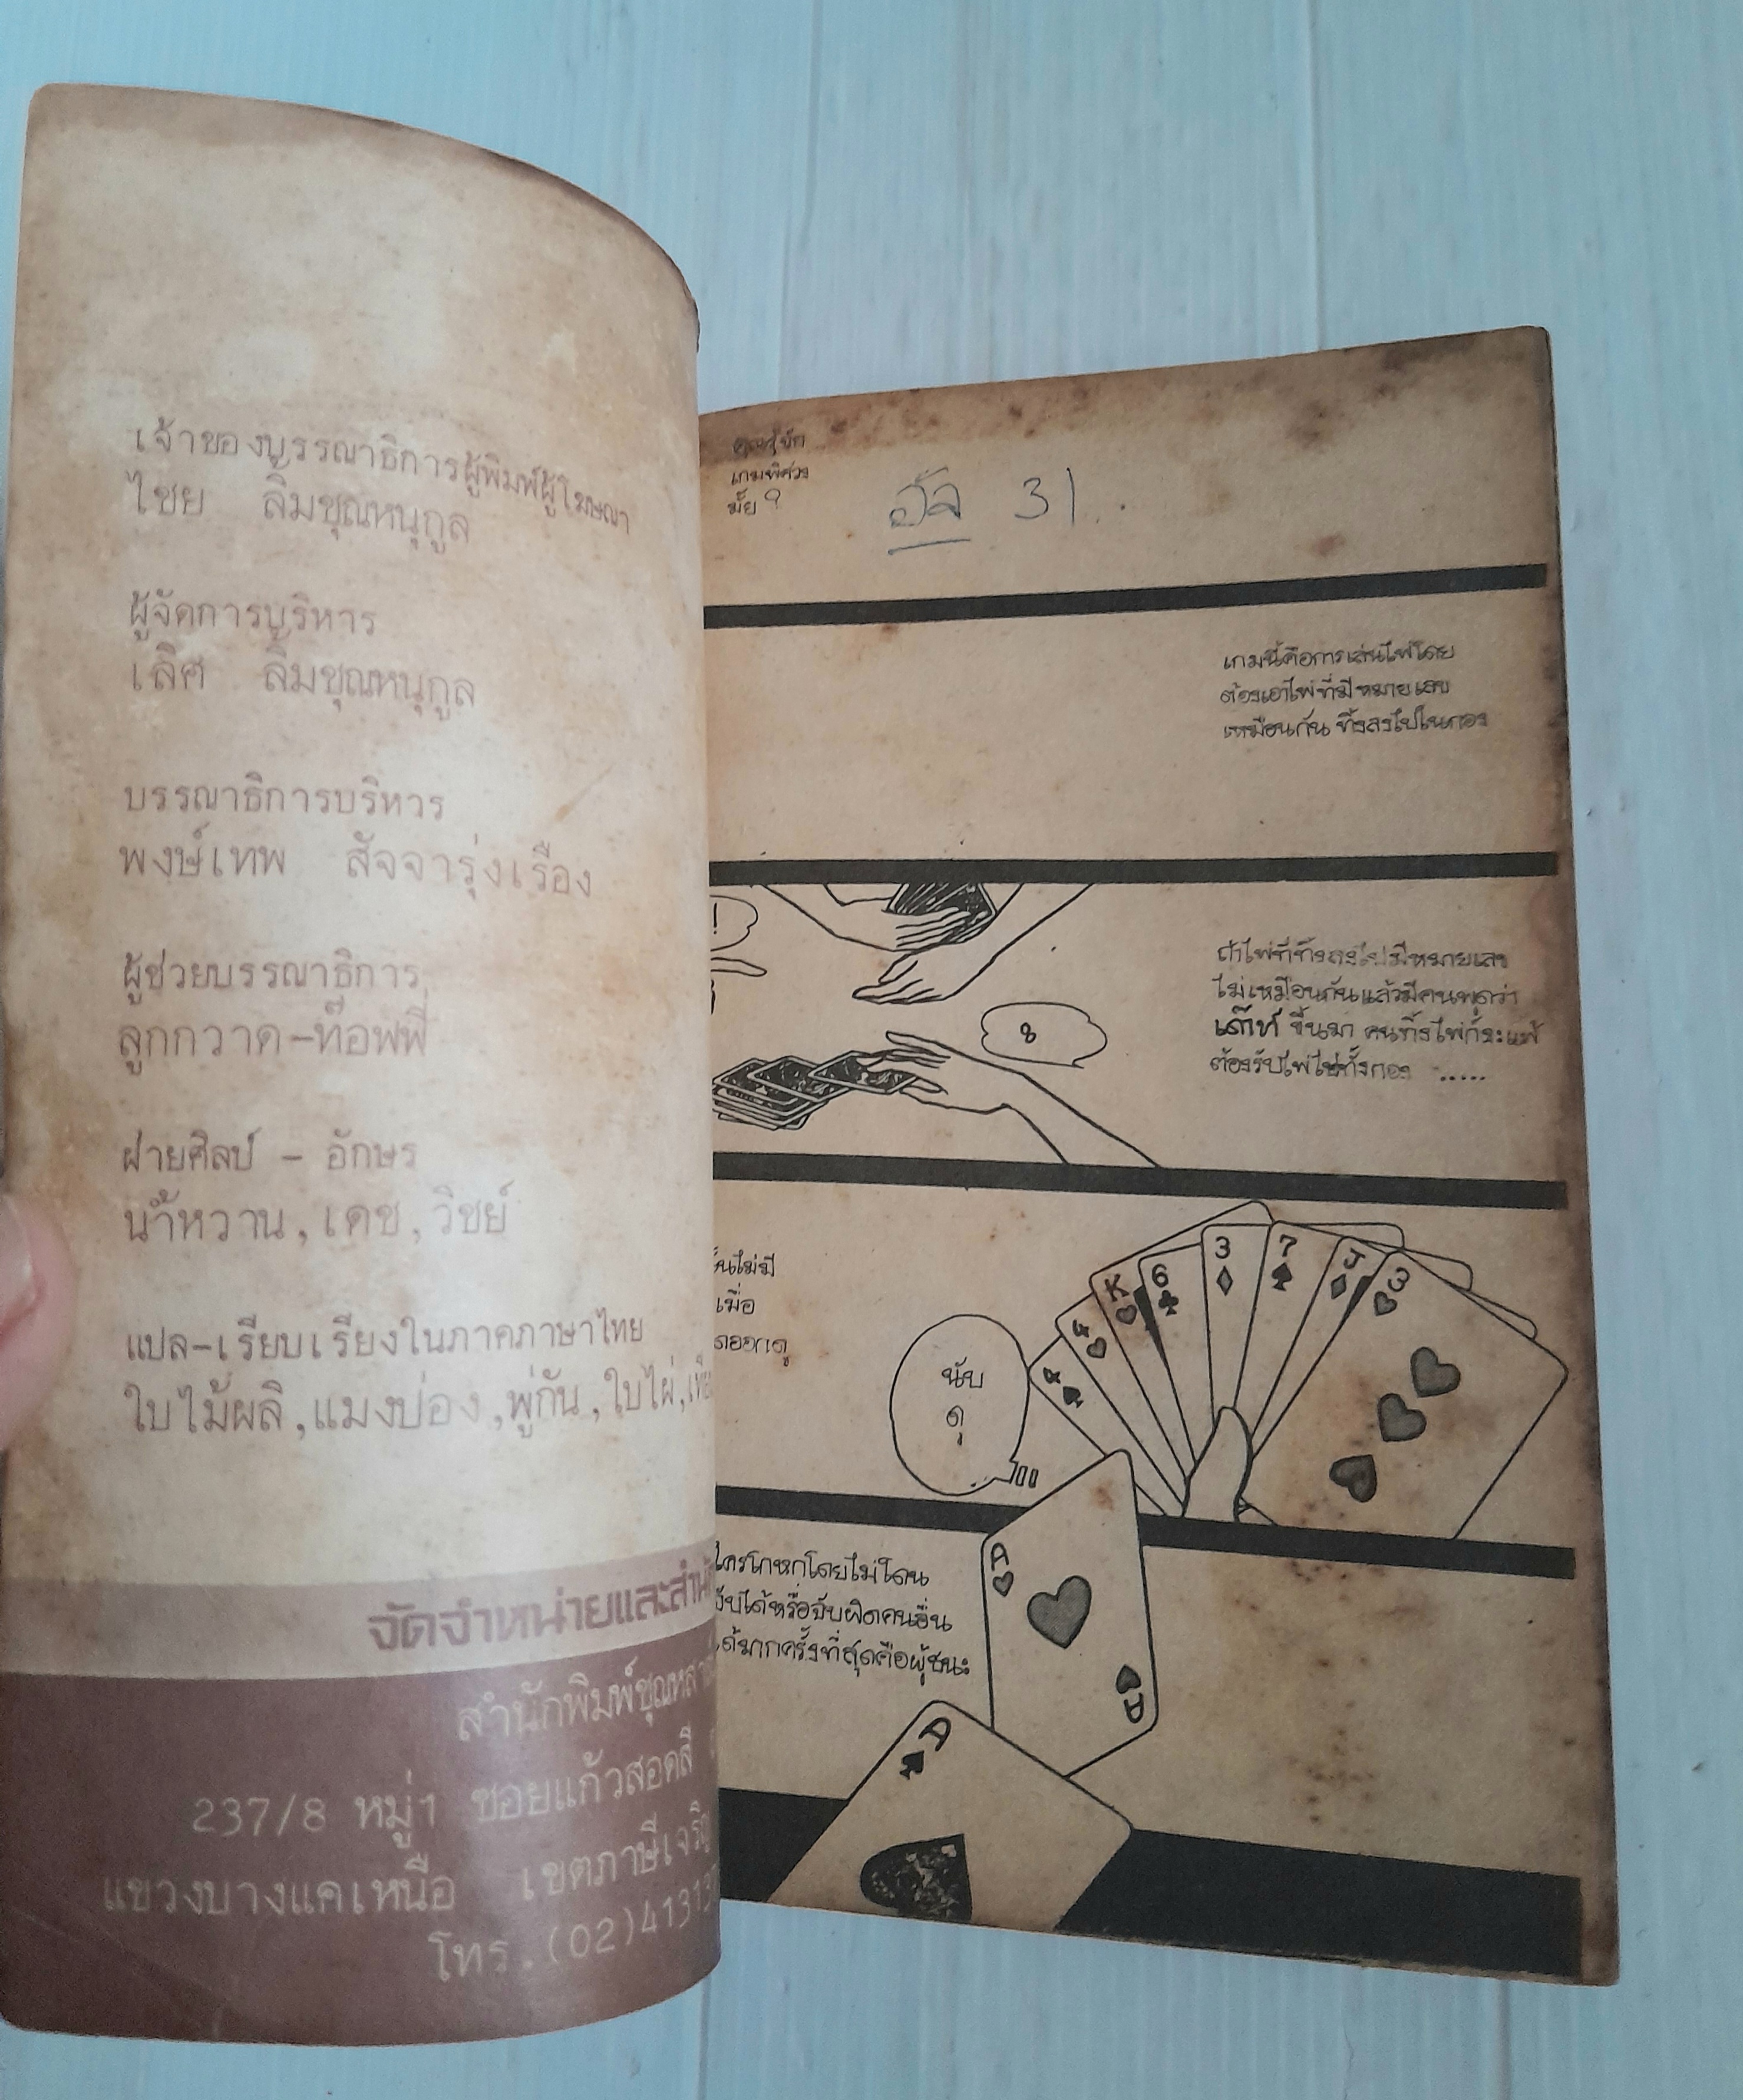 เจ้าของบรรณาธิการผู้พิมพ์ผู้โฆษณา
ไชย ลิ้มชุณหนุกูล
ผู้จัดการบริหาร
เลิศ ลิ้มชุณหนุกูล
บรรณาธิการบริหาร
พงษ์เทพ สัจจารุ่งเรือง
ผู้ช่วยบรรณาธิการ
ลูกกวาด-ท๊อฟฟี่
ฝ่ายศิลป์ - อักษร
น้ำหวาน, เดช, วิชย์
แปล-เรียบเรียงในภาคภาษาไทย
ใบไม้ผลิ, แมงป่อง, พู่กัน, ใบไผ่,
จัดจำหน่ายและสำนั
สำนักพิมพ์
237/8 หมู่1 ซอยแก้วสอดสี
แขวงบางแคเหนือ เขตภาษีเจริญ
โทร.(02)4131
คุณรู้จัก
เกมพิศวง
มั้ย?
31..
เกมนี้คือการเล่นไพ่โดย
ต้องเอาไพ่ที่มีหมายเลข
เหมือนกัน ทิ้งลงไปในกอง
!
8
ถ้าไพ่ที่ทิ้งลงไปมีหมายเลข
ไม่เหมือนกันแล้วมีคนพูดว่า
เด๊าท์ ขึ้นมา คนทิ้งไพ่ก็จะแพ้
ต้องรับไพ่ไปทั้งกอง .....
นไม่มี
เมื่อ
ดออกดู
นับ
ดู
4
4
K
6
3
7
J
3
ใครโกหกโดยไม่โดน
จับได้หรือจับผิดคนอื่น
ได้มากครั้งที่สุดคือผู้ชนะ
A
A
A